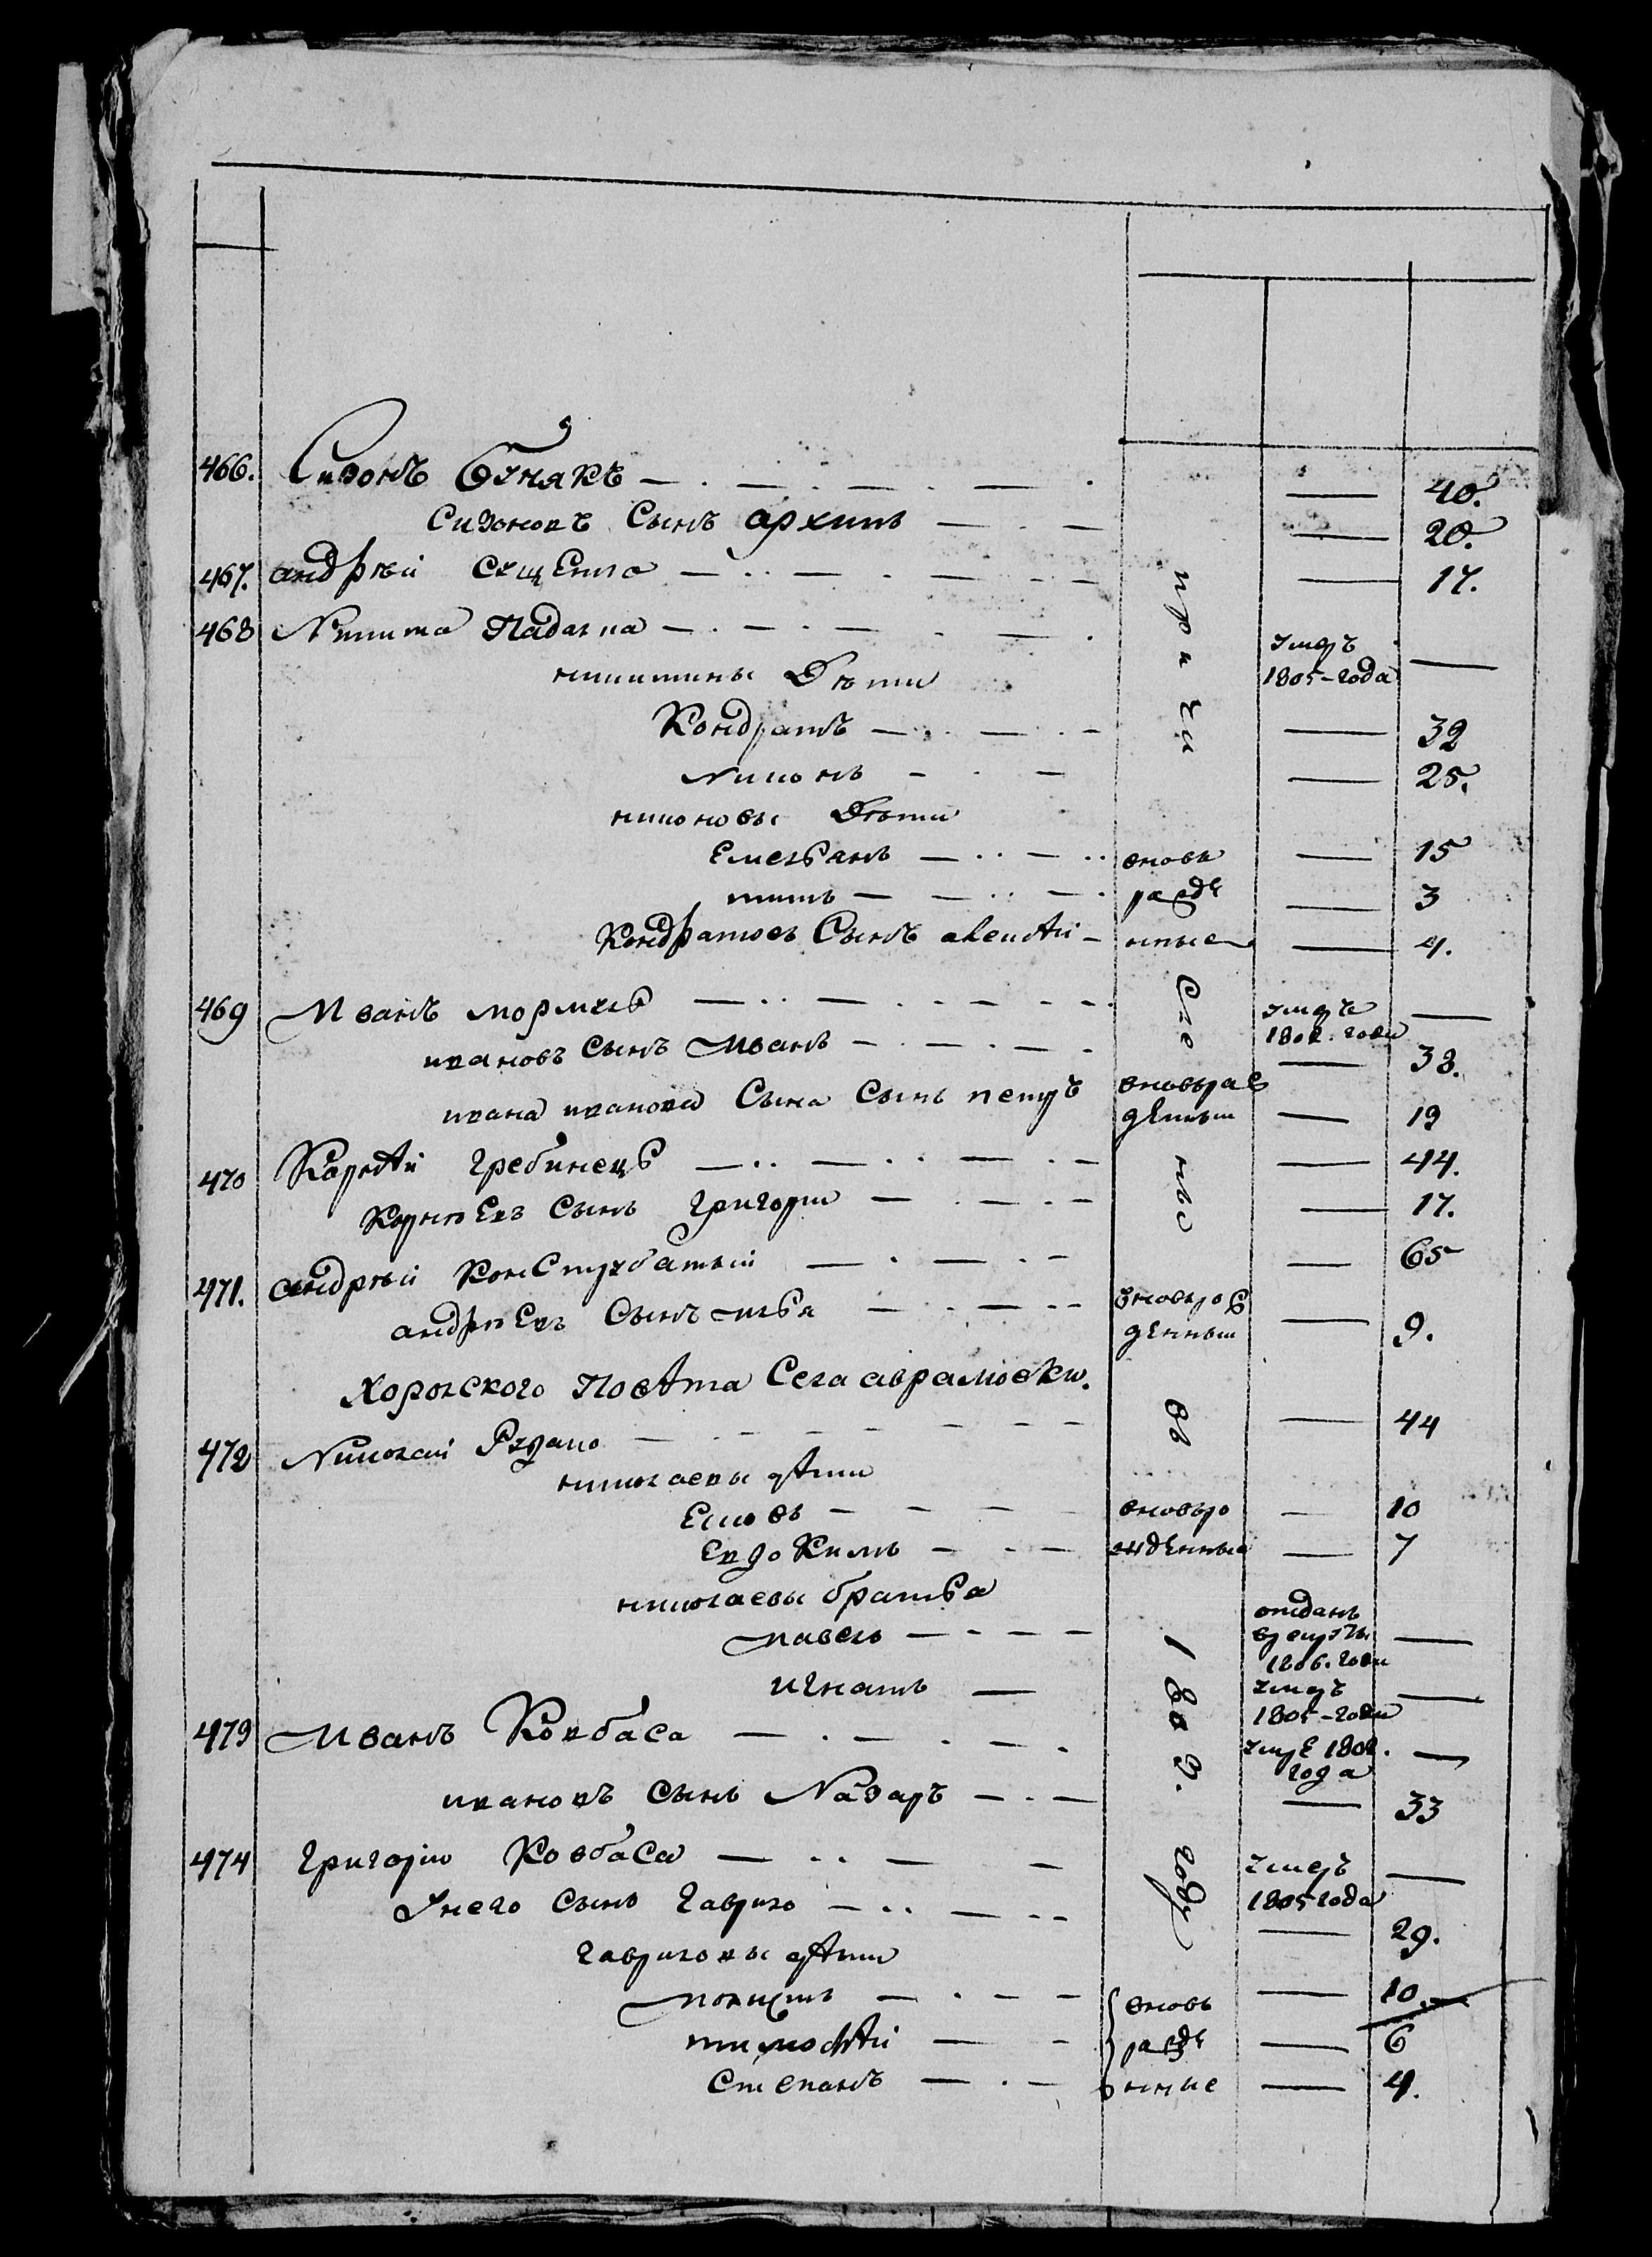 466. Сизонъ — 40.
Сизоновъ Сынъ архипъ — 20.
467. андрѣй сущенко — 17.
468 Никита Падалка — умеръ 1805-года —
никитины Дѣти
Кондратъ — 32
Никонъ — 25.
никоновы Дѣти
Емельянъ — вновь 15
титъ — рожде 3
Кондратовъ Сынъ — нные 4.
469 Иванъ — умеръ 180. года —
ивановъ сынъ Иванъ — 38.
ивана иванова Сына Сынъ петръ вновьрож денъ — 19
470 Корнѣй гребинець — 44.
Корнѣевъ Сынъ григорій — 17.
471. андрѣй — 65
андрѣевъ Сынъ илья — вновьрож денный — 9.
Хорольского Повѣта Села аврамовки.
472 Николай — 44
николаевы дѣти
— вновьро 10
Евдокимъ — жденные 7
николаевы братья
Павелъ — отданъ врекруты 1806. года —
игнатъ — умеръ 1805-года —
473 Иванъ Ковбаса — умре 180. года —
ивановъ сынъ Назаръ — 33
474 григорій Ковбаса — умеръ 1805 года —
Унего сынъ гаврило — 29.
гавриловы дѣти
— вновь 10.
тимофѣй — рожде 6
Степанъ — нные 4.
причислены въ году